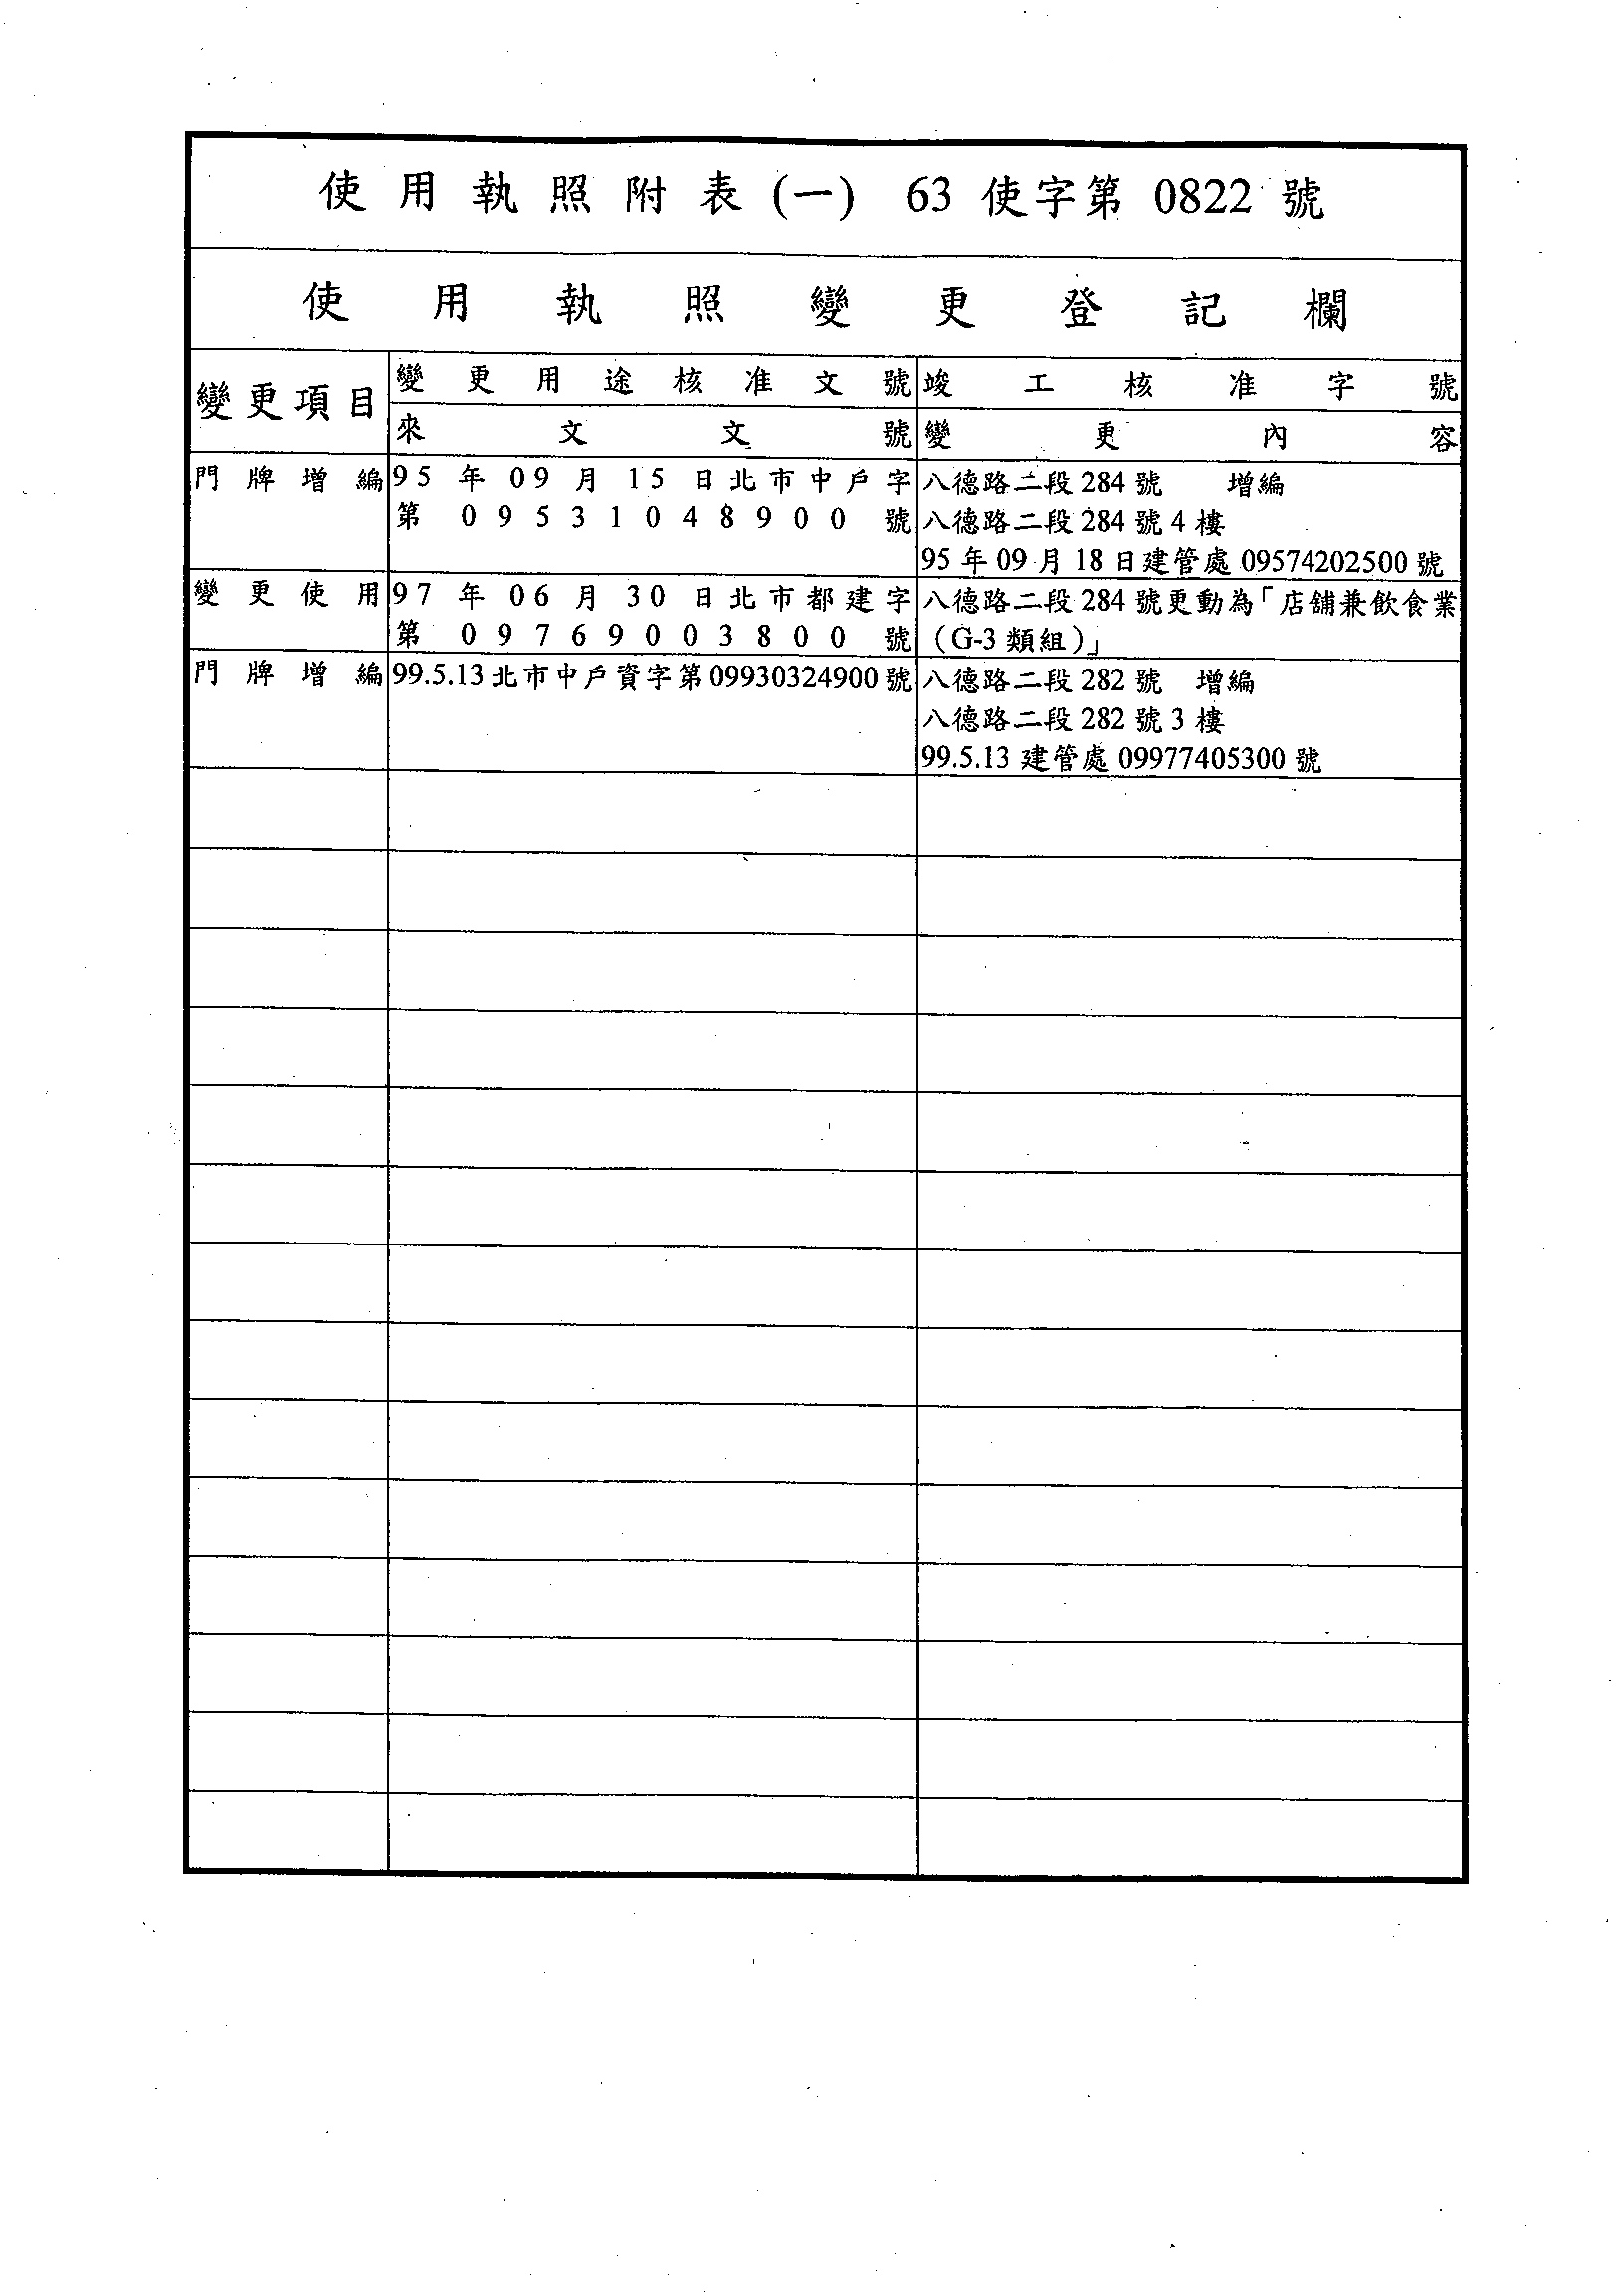 使用執照附表(一) 63使字第0822號
使用執照變更登記欄
變更項目
變更用途核准文號
竣工核准字號
來文文號
變更內容
門牌增編
95年09月15日北市中戶字
第09531048900號
八德路二段284號 增編
八德路二段284號4樓
95年09月18日建管處09574202500號
變更使用
97年06月30日北市都建字
第09769003800號
八德路二段284號更動為「店舖兼飲食業
（G-3類組）」
門牌增編
99.5.13北市中戶資字第09930324900號
八德路二段282號 增編
八德路二段282號3樓
99.5.13建管處09977405300號